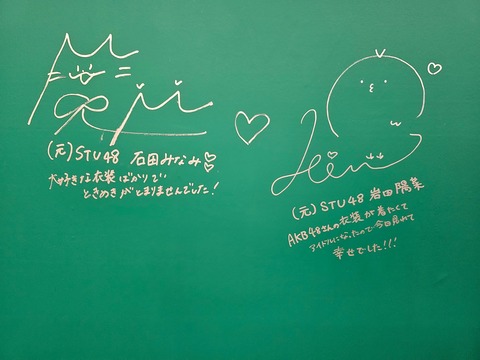 (元)STU48 石田みなみ♡♡
大好きな衣装ばかりで
ときめきがとまりませんでした！
(元)STU48 岩田陽菜
AKB48さんの衣装が着たくて
アイドルになったので今日着れて
幸せでした!!!